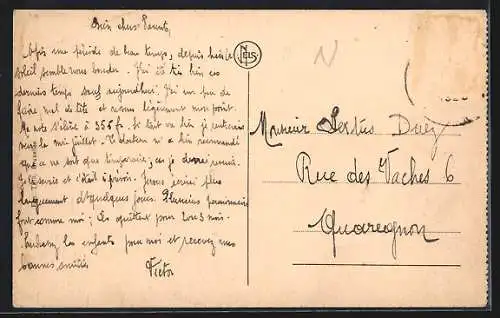 Bien chers Parents,
Après une période de beau temps, depuis hier le
soleil semble nous bouder. J'ai été très bien ces
derniers temps sauf aujourd'hui. J'ai un peu de
mal de tête et
Ma note s'élève à 355 fr. Si tout va bien je rentrerais
vers le mi-juillet. Le docteur m'a bien recommandé
que ce ne soit que temporaire; car je
Je le savais et c'était à prévoir. Je vous écrirai plus
longuement d'ici quelques jours. Plusieurs pensionnaires
font comme moi; ils quittent pour 2 ou 3 mois.
Embrassez les enfants pour moi et recevez mes
bonnes amitiés
Victor
NELS
N
Monsieur Sextus Duez
Rue des Vaches 6
Quaregnon